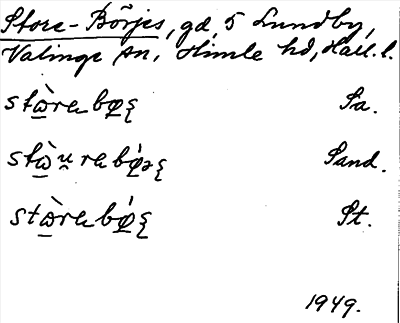 Store-Börjes, gd, 5 Lundby,
Valinge sn, Himle hd, Hall. l.
stɷ̠̀rabø̠ʂ Sa.
stɷ̠̀u̯rabǿ̠əʂ Sand.
stɷ̠̀rabǿ̠ʂ St.
1949.